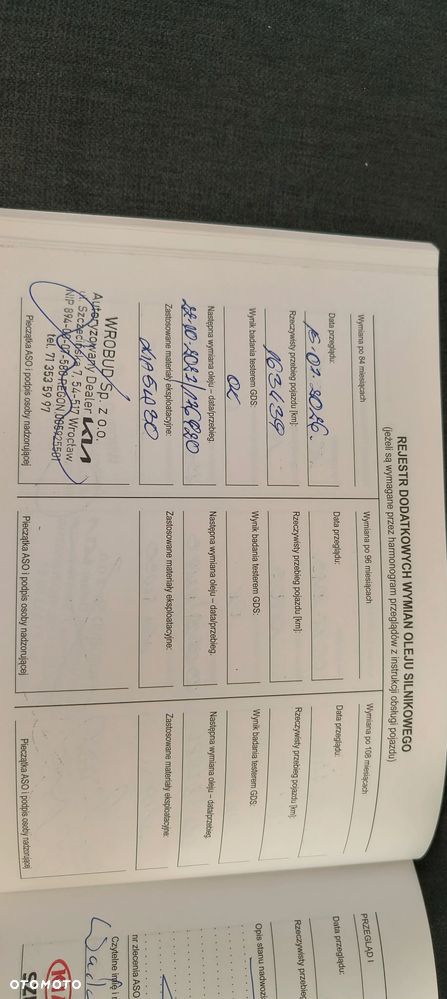 REJESTR DODATKOWYCH WYMIAN OLEJU SILNIKOWEGO
(jeżeli są wymagane przez harmonogram przeglądów z instrukcji obsługi pojazdu)
Wymiana po 84 miesiącach
Data przeglądu:
Rzeczywisty przebieg pojazdu [km]:
163439
Wynik badania testerem GDS:
OK
Następna wymiana oleju – data/przebieg.
Zastosowane materiały eksploatacyjne:
WROBUD Sp. z o.o.
Autoryzowany Dealer KIA
ul. Szczecińska 7, 54-517 Wrocław
tel. 71 353 59 97
Pieczątka ASO i podpis osoby nadzorującej
Wymiana po 96 miesiącach
Data przeglądu:
Rzeczywisty przebieg pojazdu [km]:
Wynik badania testerem GDS:
Następna wymiana oleju – data/przebieg.
Zastosowane materiały eksploatacyjne:
Pieczątka ASO i podpis osoby nadzorującej
Wymiana po 108 miesiącach
Data przeglądu:
Rzeczywisty przebieg pojazdu [km]:
Wynik badania testerem GDS:
Następna wymiana oleju – data/przebieg.
Zastosowane materiały eksploatacyjne:
Pieczątka ASO i podpis osoby nadzorującej
PRZEGLĄD I
Data przeglądu:
Rzeczywisty przebieg
Opis stanu nadwozi
nr zlecenia ASO
Czytelne imię i
KIA
OTOMOTO